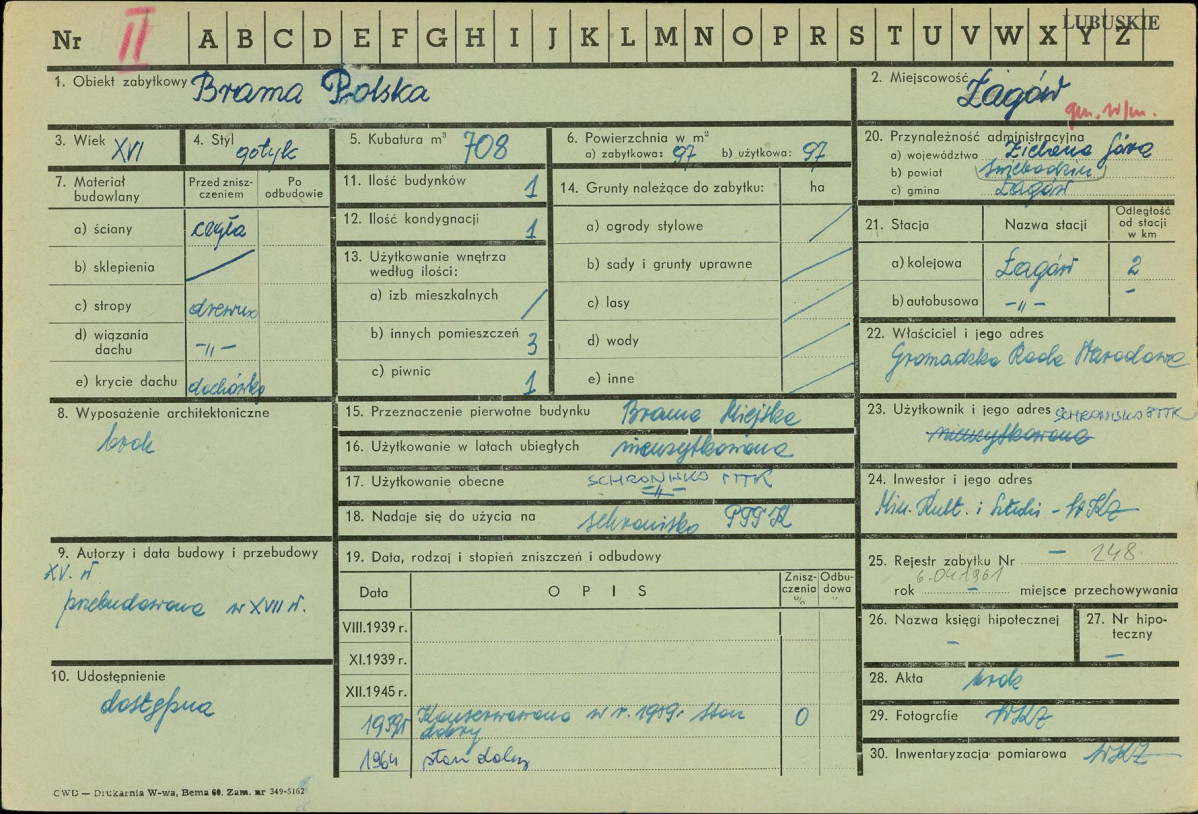 LUBUSKIE
Nr II A B C D E F G H I J K L M N O P R S T U V W X Y Z
1. Obiekt zabytkowy Brama Polska
2. Miejscowość Łagów
gm. w/m.
3. Wiek XVI
4. Styl gotyk
5. Kubatura m³ 708
6. Powierzchnia w m²
a) zabytkowa: 97 b) użytkowa: 97
20. Przynależność administracyjna
a) województwo Zielona Góra
b) powiat Świebodzin
c) gmina Łagów
7. Materiał budowlany
Przed zniszczeniem
Po odbudowie
a) ściany cegła
b) sklepienia /
c) stropy drewno
d) wiązania dachu -"-
e) krycie dachu dachówka
11. Ilość budynków 1
12. Ilość kondygnacji 1
13. Użytkowanie wnętrza
według ilości:
a) izb mieszkalnych /
b) innych pomieszczeń 3
c) piwnic 1
14. Grunty należące do zabytku: ha
a) ogrody stylowe /
b) sady i grunty uprawne /
c) lasy /
d) wody /
e) inne /
21. Stacja Nazwa stacji Odległość od stacji w km
a) kolejowa Łagów 2
b) autobusowa -"- -
22. Właściciel i jego adres
Gromadzka Rada Narodowa
8. Wyposażenie architektoniczne
brak
15. Przeznaczenie pierwotne budynku Brama Miejska
16. Użytkowanie w latach ubiegłych nieużytkowana
17. Użytkowanie obecne SCHRONISKO PTTK
-"-
18. Nadaje się do użycia na schronisko PTTK
23. Użytkownik i jego adres SCHRONISKO PTTK
nieużytkowana
24. Inwestor i jego adres
Min. Kult. i Sztuki - WKZ
9. Autorzy i data budowy i przebudowy
XV. w
przebudowana w XVII w.
19. Data, rodzaj i stopień zniszczeń i odbudowy
Data OPIS Zniszczenia % Odbudowa
VIII.1939 r.
XI.1939 r.
XII.1945 r.
1959r Konserwowana w r. 1959r stan
dobry 0
1964 stan dobry
25. Rejestr zabytku Nr - 248
6.04.1961
rok - miejsce przechowywania
26. Nazwa księgi hipotecznej
-
27. Nr hipoteczny
-
10. Udostępnienie
dostępna
28. Akta brak
29. Fotografie WKZ
30. Inwentaryzacja pomiarowa WKZ
CWD — Drukarnia W-wa, Bema 60. Zam. nr 349-5162